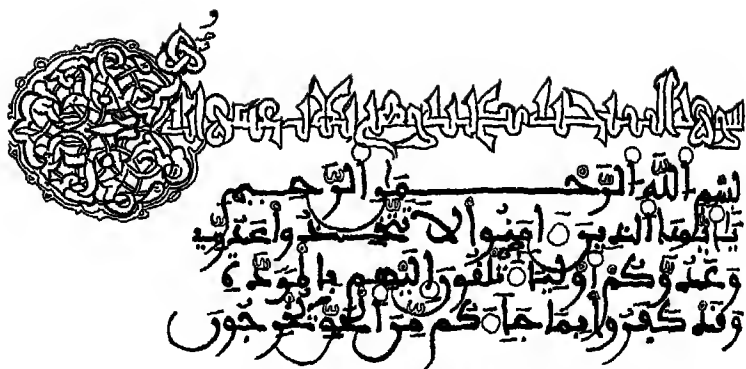 سورة
بِسْمِ اَ۬للَّهِ اِ۬لرَّحْمَٰنِ اِ۬لرَّحِيمِ
يَٰأَيُّهَا اَ۬لذِينَ ءَامَنُواْ لَا تَتَّخِذُواْ عَدُوِّي
وَعَدُوَّكُمْ أَوْلِيَآءَ تُلْقُونَ إِلَيْهِم بِالْمَوَدَّةِ
وَقَدْ كَفَرُواْ بِمَا جَآءَكُم مِّنَ اَ۬لْحَقِّ يُخْرِجُونَ